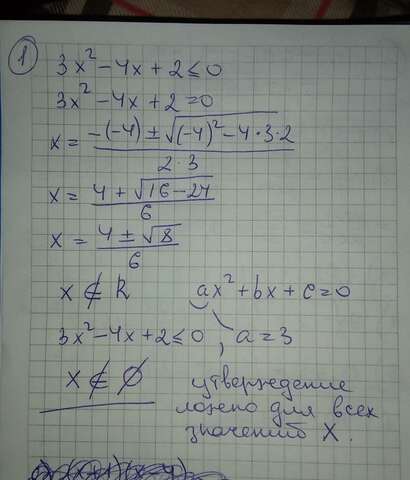 1
3x² - 4x + 2 ≤ 0
3x² - 4x + 2 = 0
x = (-(-4) ± √((-4)² - 4·3·2)) / (2·3)
x = (4 + √(16 - 24)) / 6
x = (4 ± √8) / 6
x ∉ R   ax² + bx + c = 0
3x² - 4x + 2 ≤ 0, a = 3
x ∉ ∅   утверждение
ложно для всех
значений X.